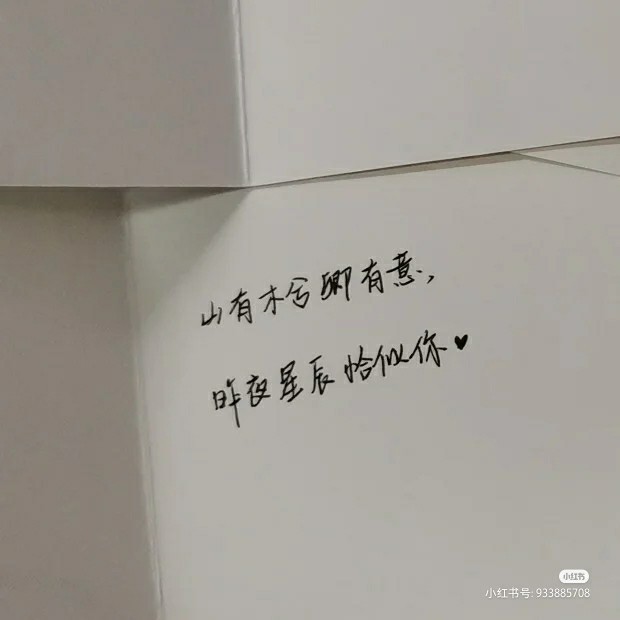 山有木兮卿有意,
昨夜星辰恰似你♥
小红书
小红书号: 933885708